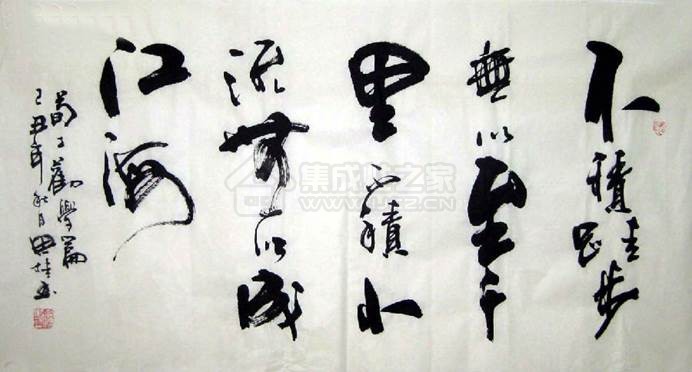 不積跬步
無以至千
里不積小
流無以成
江海
荀子勸學篇
己丑年秋月
集成之家